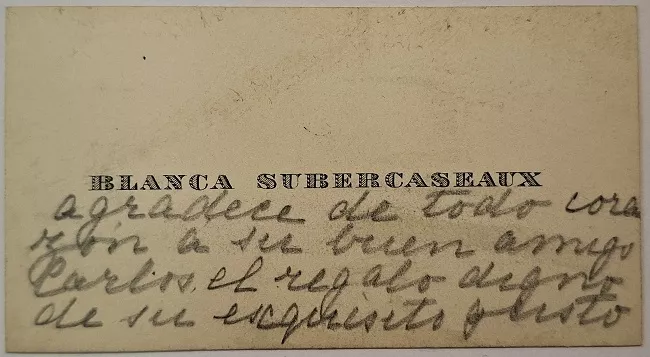 BLANCA SUBERCASEAUX
agradece de todo cora
zón a su buen amigo
Carlos, el regalo digno
de su exquisito gusto